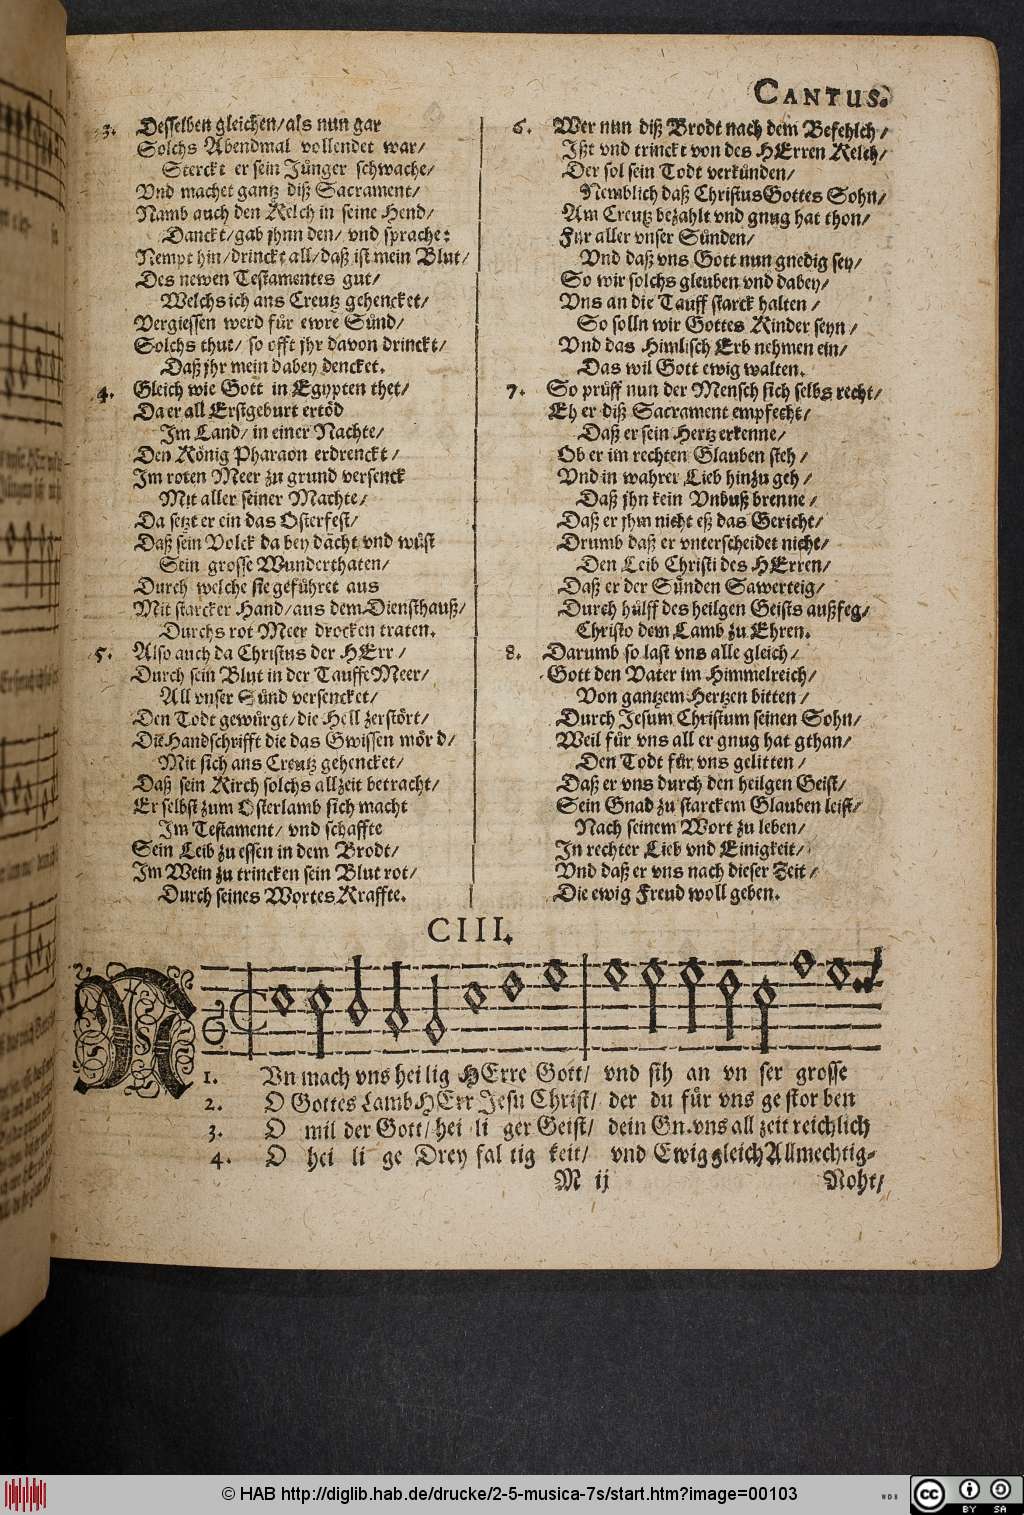 CANTUS.
3. Desselben gleichen/als nun gar
Solchs Abendmal vollendet war/
Sterckt er sein Jünger schwache/
Vnd machet gantz diß Sacrament/
Namb auch den Kelch in seine Hend/
Danckt/gab jhnn den/ vnd sprache:
Nempt hin/drinckt all/daß ist mein Blut/
Des newen Testamentes gut/
Welchs ich ans Creutz gehencket/
Vergiessen werd für ewre Sünd/
Solchs thut/ so offt jhr davon drinckt/
Daß jhr mein dabey dencket.
4. Gleich wie Gott in Egypten thet/
Da er all Erstgeburt ertöd
Im Land/ in einer Nachte/
Den König Pharaon erdrenckt/
Im roten Meer zu grund versenck
Mit aller seiner Machte/
Da setzt er ein das Osterfest/
Daß sein Volck da bey dächt vnd wüst
Sein grosse Wunderthaten/
Durch welche sie geführet aus
Mit starcker Hand/aus dem Diensthauß/
Durchs rot Meer drocken traten.
5. Also auch da Christus der HErr/
Durch sein Blut in der Tauffe Meer/
All vnser Sünd versencket/
Den Todt gewürgt/die Hell zerstört/
Die Handschrifft die das Gwissen mörd/
Mit sich ans Creutz gehencket/
Daß sein Kirch solchs allzeit betracht/
Er selbst zum Osterlamb sich macht
Im Testament/ vnd schaffte
Sein Leib zu essen in dem Brodt/
Im Wein zu trincken sein Blut rot/
Durch seines Wortes Kraffte.
6. Wer nun diß Brodt nach dem Befehlch/
Ißt vnd trinckt von des HErren Kelch/
Der sol sein Todt verkünden/
Nemblich daß Christus Gottes Sohn/
Am Creutz bezahlt vnd gnug hat thon/
Für aller vnser Sünden/
Vnd daß vns Gott nun gnedig sey/
So wir solchs gleuben vnd dabey/
Vns an die Tauff starck halten/
So solln wir Gottes Kinder seyn/
Vnd das Himlisch Erb nehmen ein/
Das wil Gott ewig walten.
7. So prüff nun der Mensch sich selbs recht/
Eh er diß Sacrament empfecht/
Daß er sein Hertz erkenne/
Ob er im rechten Glauben steh/
Vnd in wahrer Lieb hinzu geh/
Daß jhn kein Vnbuß brenne/
Daß er jhm nicht eß das Gericht/
Drumb daß er vnterscheidet nicht/
Den Leib Christi des HErren/
Daß er der Sünden Sawerteig/
Durch hülff des heilgen Geists außfeg/
Christo dem Lamb zu Ehren.
8. Darumb so last vns alle gleich/
Gott den Vater im Himmelreich/
Von gantzem Hertzen bitten/
Durch Jesum Christum seinen Sohn/
Weil für vns all er gnug hat gthan/
Den Todt für vns gelitten/
Daß er vns durch den heilgen Geist/
Sein Gnad zu starckem Glauben leist/
Nach seinem Wort zu leben/
In rechter Lieb vnd Einigkeit/
Vnd daß er vns nach dieser Zeit/
Die ewig Freud woll geben.
CIII.
N
1. Vn mach vns hei lig HErre Gott/ vnd sih an vn ser grosse
2. O Gottes Lamb HErr Jesu Christ/ der du für vns ge stor ben
3. O mil der Gott/ hei li ger Geist/ dein Gn. vns all zeit reichlich
4. O hei li ge Drey fal tig keit/ vnd Ewig gleich Allmechtig-
M ij Noht/
© HAB http://diglib.hab.de/drucke/2-5-musica-7s/start.htm?image=00103
WDB
cc BY SA